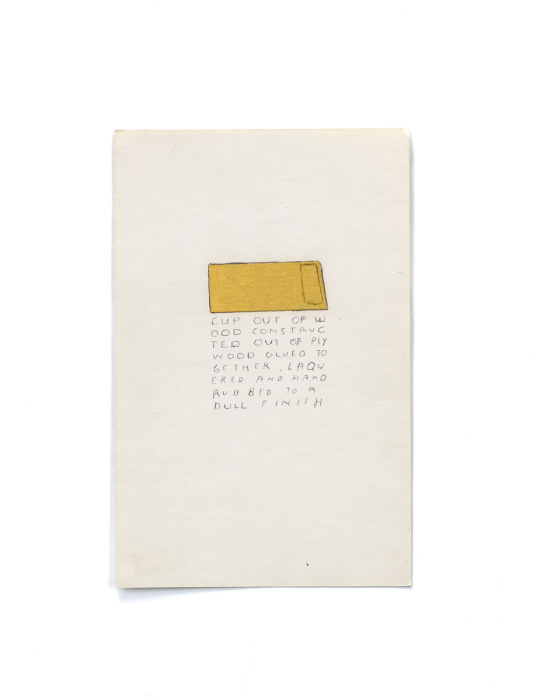 CUP OUT OF W
OOD CONSTRUC
TED OUT OF PLY
WOOD GLUED TO
GETHER, LAQU
ERED AND HAND
RUBBED TO A
DULL FINISH